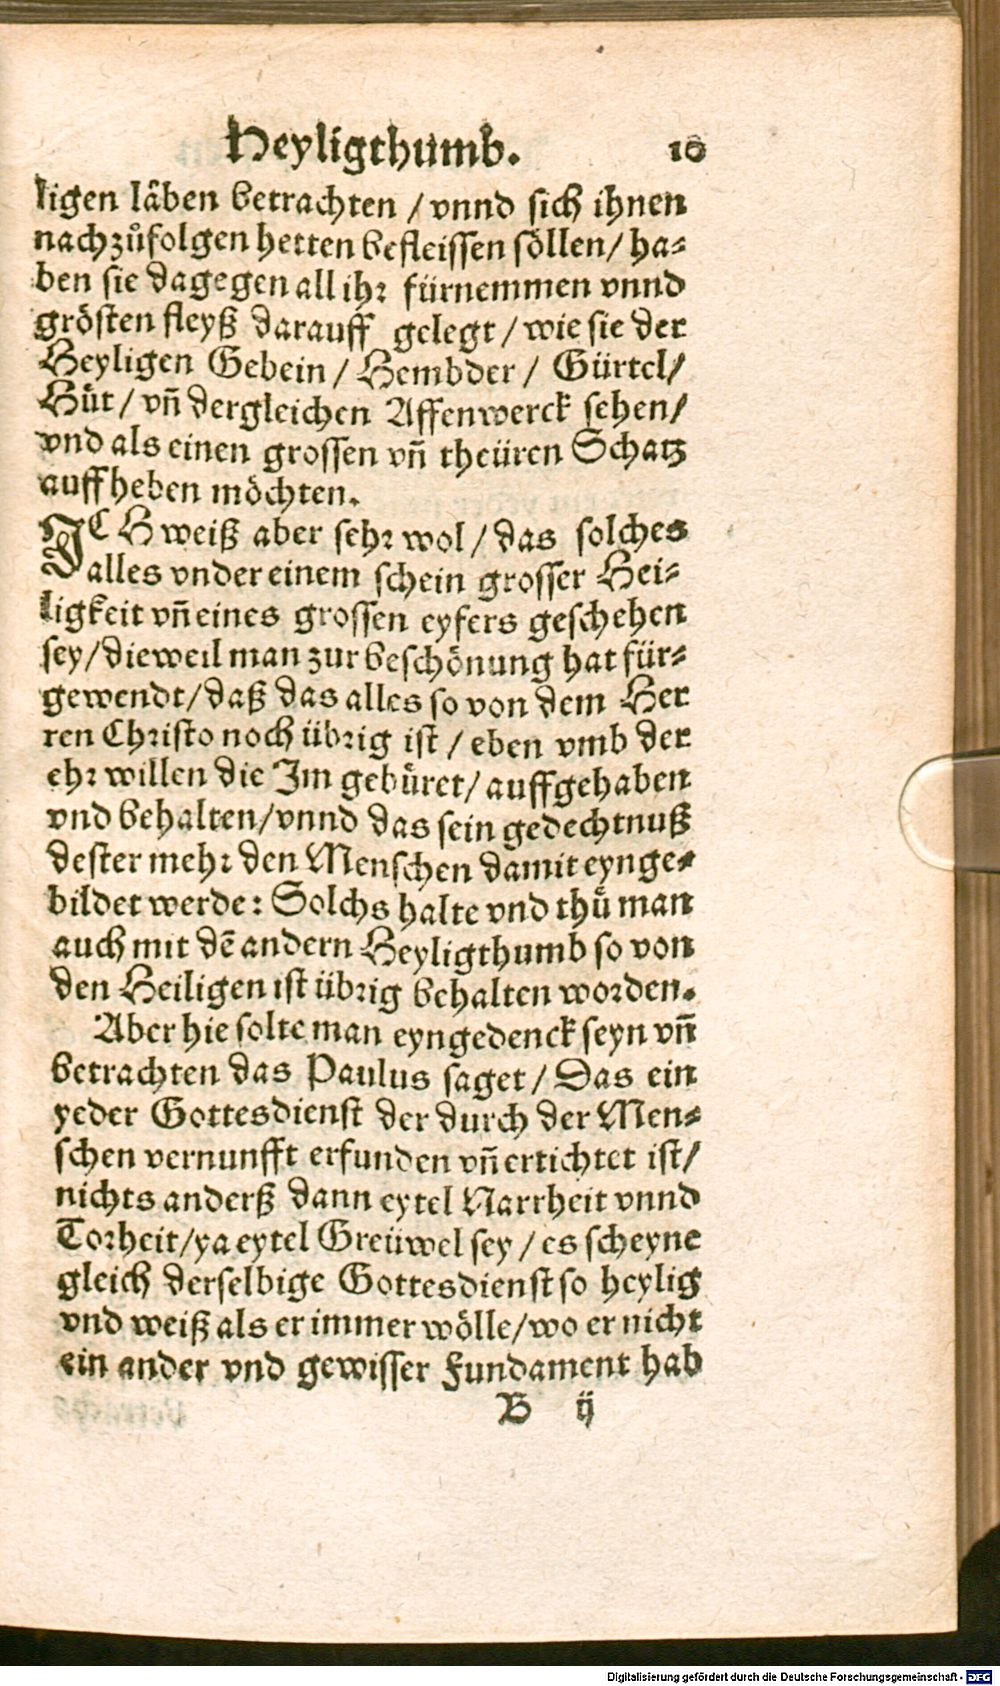 Heyligthumb. 10
ligen läben betrachten / vnnd sich ihnen
nachzůfolgen hetten befleissen söllen / ha-
ben sie dagegen all ihr fürnemmen vnnd
grösten fleyß darauff gelegt / wie sie der
Heyligen Gebein / Hembder / Gürtel /
Hüt / vñ dergleichen Affenwerck sehen /
vnd als einen grossen vñ theüren Schatz
auffheben möchten.
ICH weiß aber sehr wol / das solches
alles vnder einem schein grosser Hei-
ligkeit vñ eines grossen eyfers geschehen
sey / dieweil man zur beschönung hat für-
gewendt / daß das alles so von dem Her
ren Christo noch übrig ist / eben vmb der
ehr willen die Im gebüret / auffgehaben
vnd behalten / vnnd das sein gedechtnuß
dester mehr den Menschen damit eynge-
bildet werde: Solchs halte vnd thů man
auch mit dē andern Heyligthumb so von
den Heiligen ist übrig behalten worden.
Aber hie solte man eyngedenck seyn vñ
betrachten das Paulus saget / Das ein
yeder Gottesdienst der durch der Men-
schen vernunfft erfunden vñ ertichtet ist /
nichts anderß dann eytel Narrheit vnnd
Torheit / ya eytel Greüwel sey / es scheyne
gleich derselbige Gottesdienst so heylig
vnd weiß als er immer wölle / wo er nicht
ein ander vnd gewisser Fundament hab
B ij
Digitalisierung gefördert durch die Deutsche Forschungsgemeinschaft - DFG